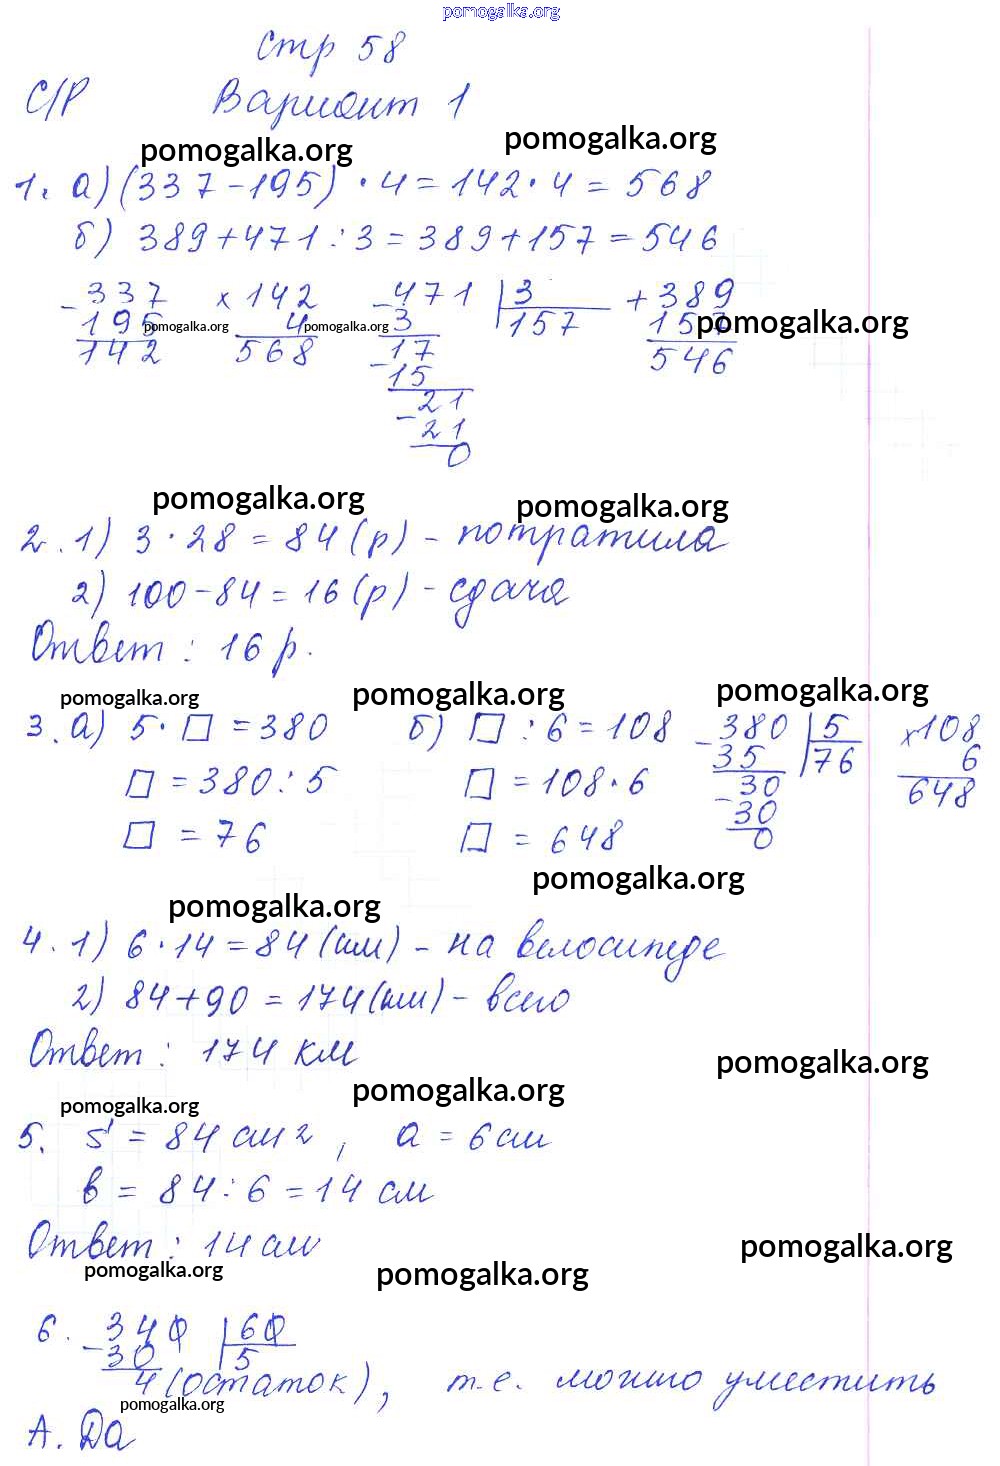 pomogalka.org
стр 58
С/Р Вариант 1
pomogalka.org pomogalka.org
1. а) (337-195) · 4 = 142 · 4 = 568
б) 389+471:3=389+157=546
- 337 x 142 - 471 | 3 + 389
195 4 3 157 157
pomogalka.org pomogalka.org pomogalka.org
142 568 - 17 546
15
- 21
21
0
pomogalka.org pomogalka.org
2. 1) 3 · 28 = 84 (р) - потратила
2) 100-84=16 (р) - сдача
Ответ: 16 р.
pomogalka.org pomogalka.org pomogalka.org
3. а) 5 · □ = 380 б) □ : 6 = 108 - 380 | 5 x 108
35 76 6
□ = 380 : 5 □ = 108 · 6 - 30 648
30
□ = 76 □ = 648 0
pomogalka.org pomogalka.org
4. 1) 6 · 14 = 84 (км) - на велосипеде
2) 84+90 = 174 (км) - всего
Ответ: 174 км
pomogalka.org pomogalka.org pomogalka.org
5. S = 84 см2, a = 6 см
в = 84 : 6 = 14 см
Ответ: 14 см
pomogalka.org pomogalka.org pomogalka.org
6. - 340 | 60
30 5
4 (остаток), т.е. можно уместить
pomogalka.org
А. Да